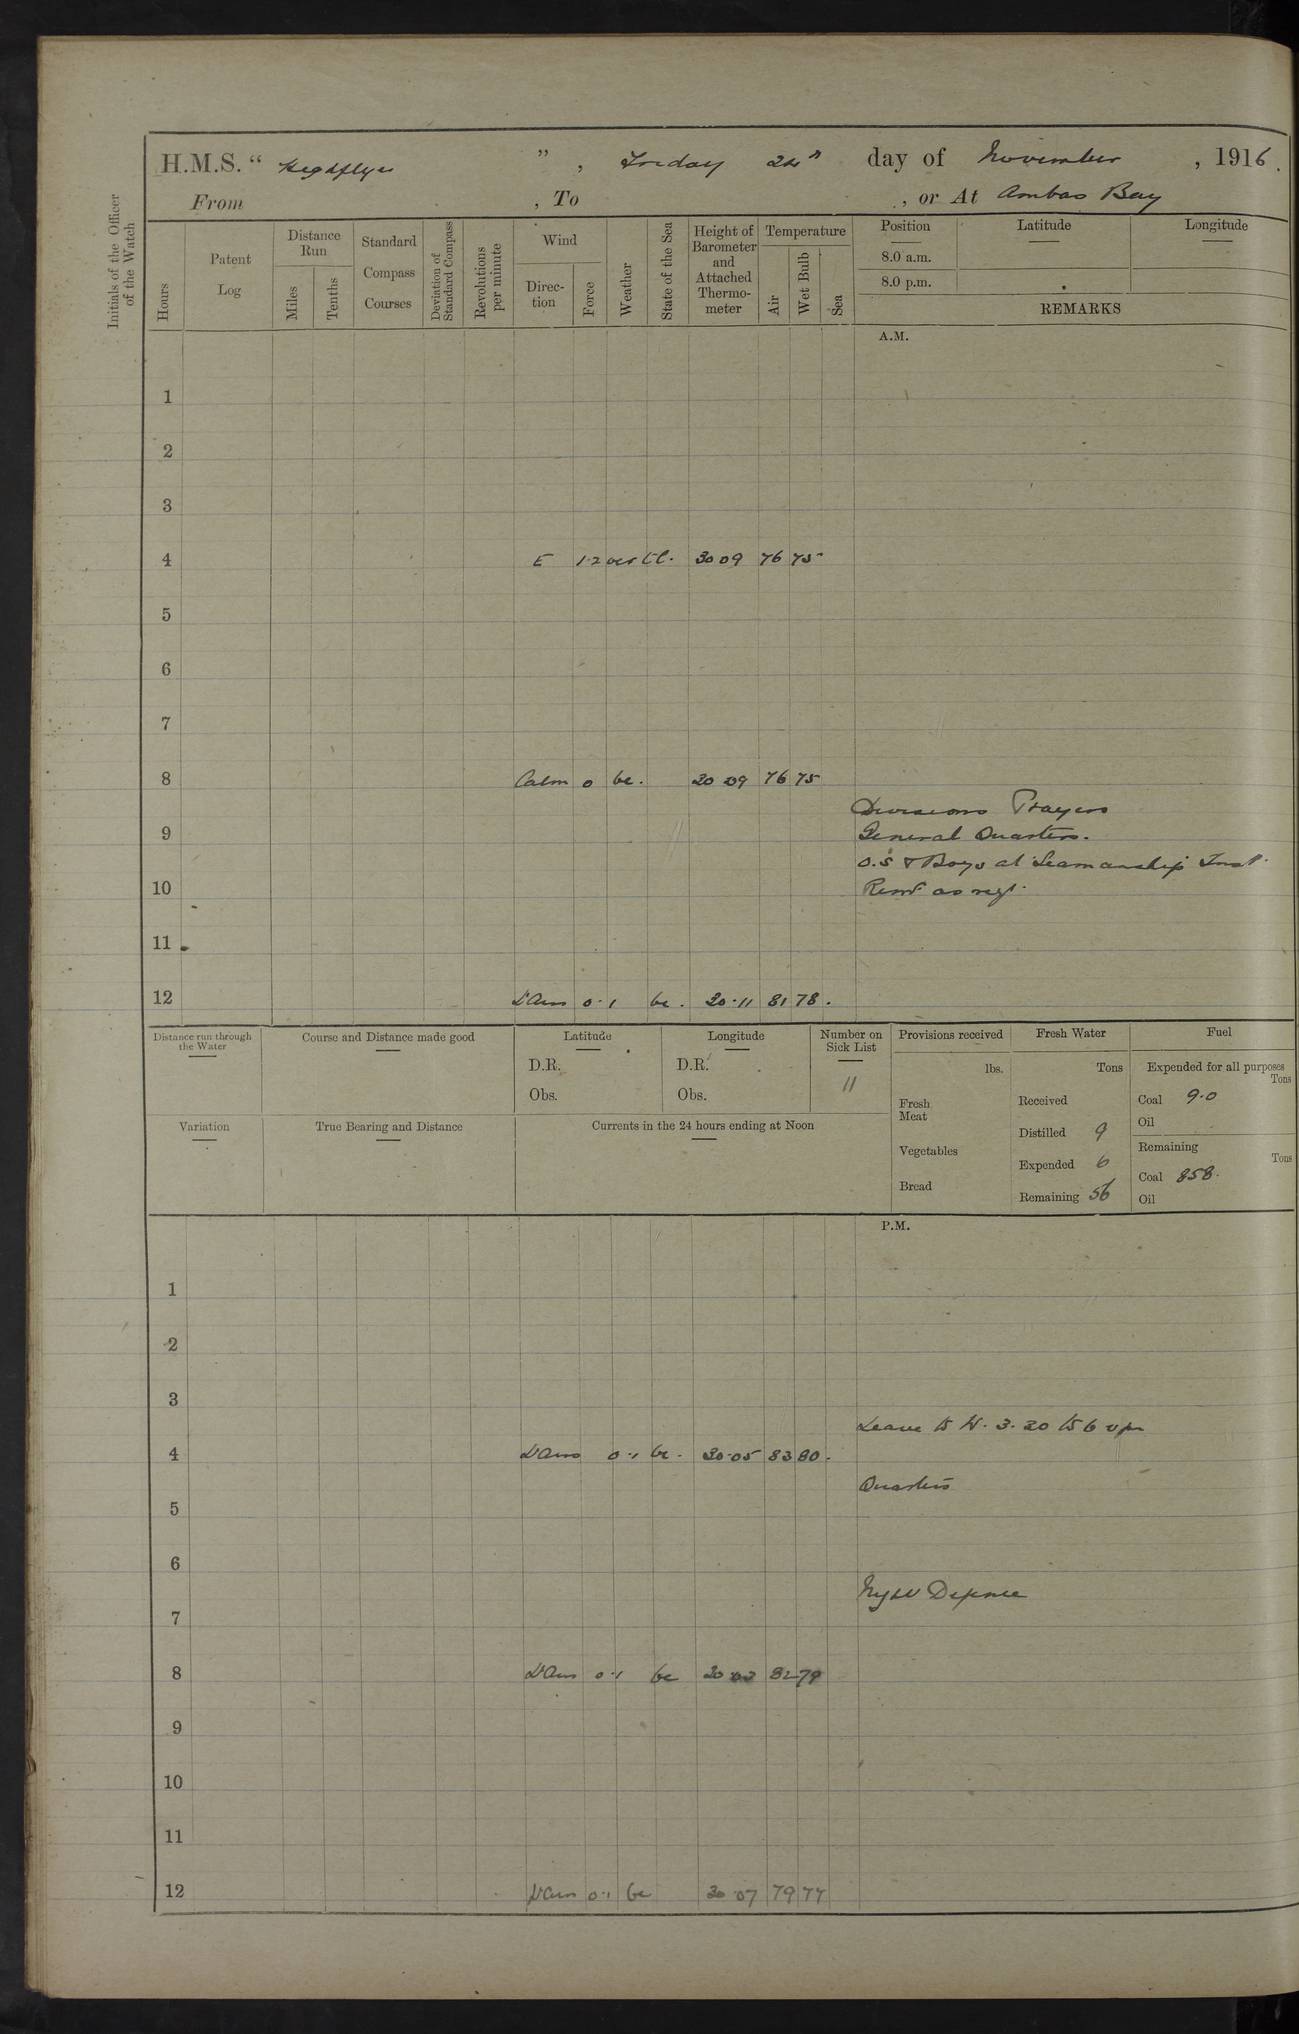 H.M.S. “ Highflyer ” , Friday 24th day of November , 1916.
From , To , or At Ambas Bay
Initials of the Officer of the Watch
Hours
Patent Log
Distance Run
Miles
Tenths
Standard Compass Courses
Deviation of Standard Compass
Revolutions per minute
Wind
Direc-tion
Force
Weather
State of the Sea
Height of Barometer and Attached Thermo-meter
Temperature
Air
Wet Bulb
Sea
Position
Latitude
Longitude
8.0 a.m.
8.0 p.m.
REMARKS
A.M.
1
2
3
4 E 1·2 30 09 76 75
5
6
7
8 Calm 0 bc. 30 09 76 75
Divisions Prayers
9 General Quarters.
O.S & Boys at Seamanship Inst.
10 Remr as req.
11
12 L'Airs 0·1 bc. 30·11 81 78.
Distance run through the Water
Course and Distance made good
Latitude
D.R.
Obs.
Longitude
D.R.
Obs.
Number on Sick List
11
Provisions received
lbs.
Fresh Meat
Vegetables
Bread
Fresh Water
Tons
Received
Distilled 9
Expended 6
Remaining 56
Fuel
Expended for all purposes
Tons
Coal 9·0
Oil
Remaining
Tons
Coal 858.
Oil
Variation
True Bearing and Distance
Currents in the 24 hours ending at Noon
P.M.
1
2
3
Leave to W. 3.30 to 6
4 L'Airs 0·1 bc. 30·05 83 80.
Quarters
5
6
Night Defence
7
8 L'Airs 0·1 bc 30 03 82 79
9
10
11
12 L'Airs 0·1 bc 30 07 79 77